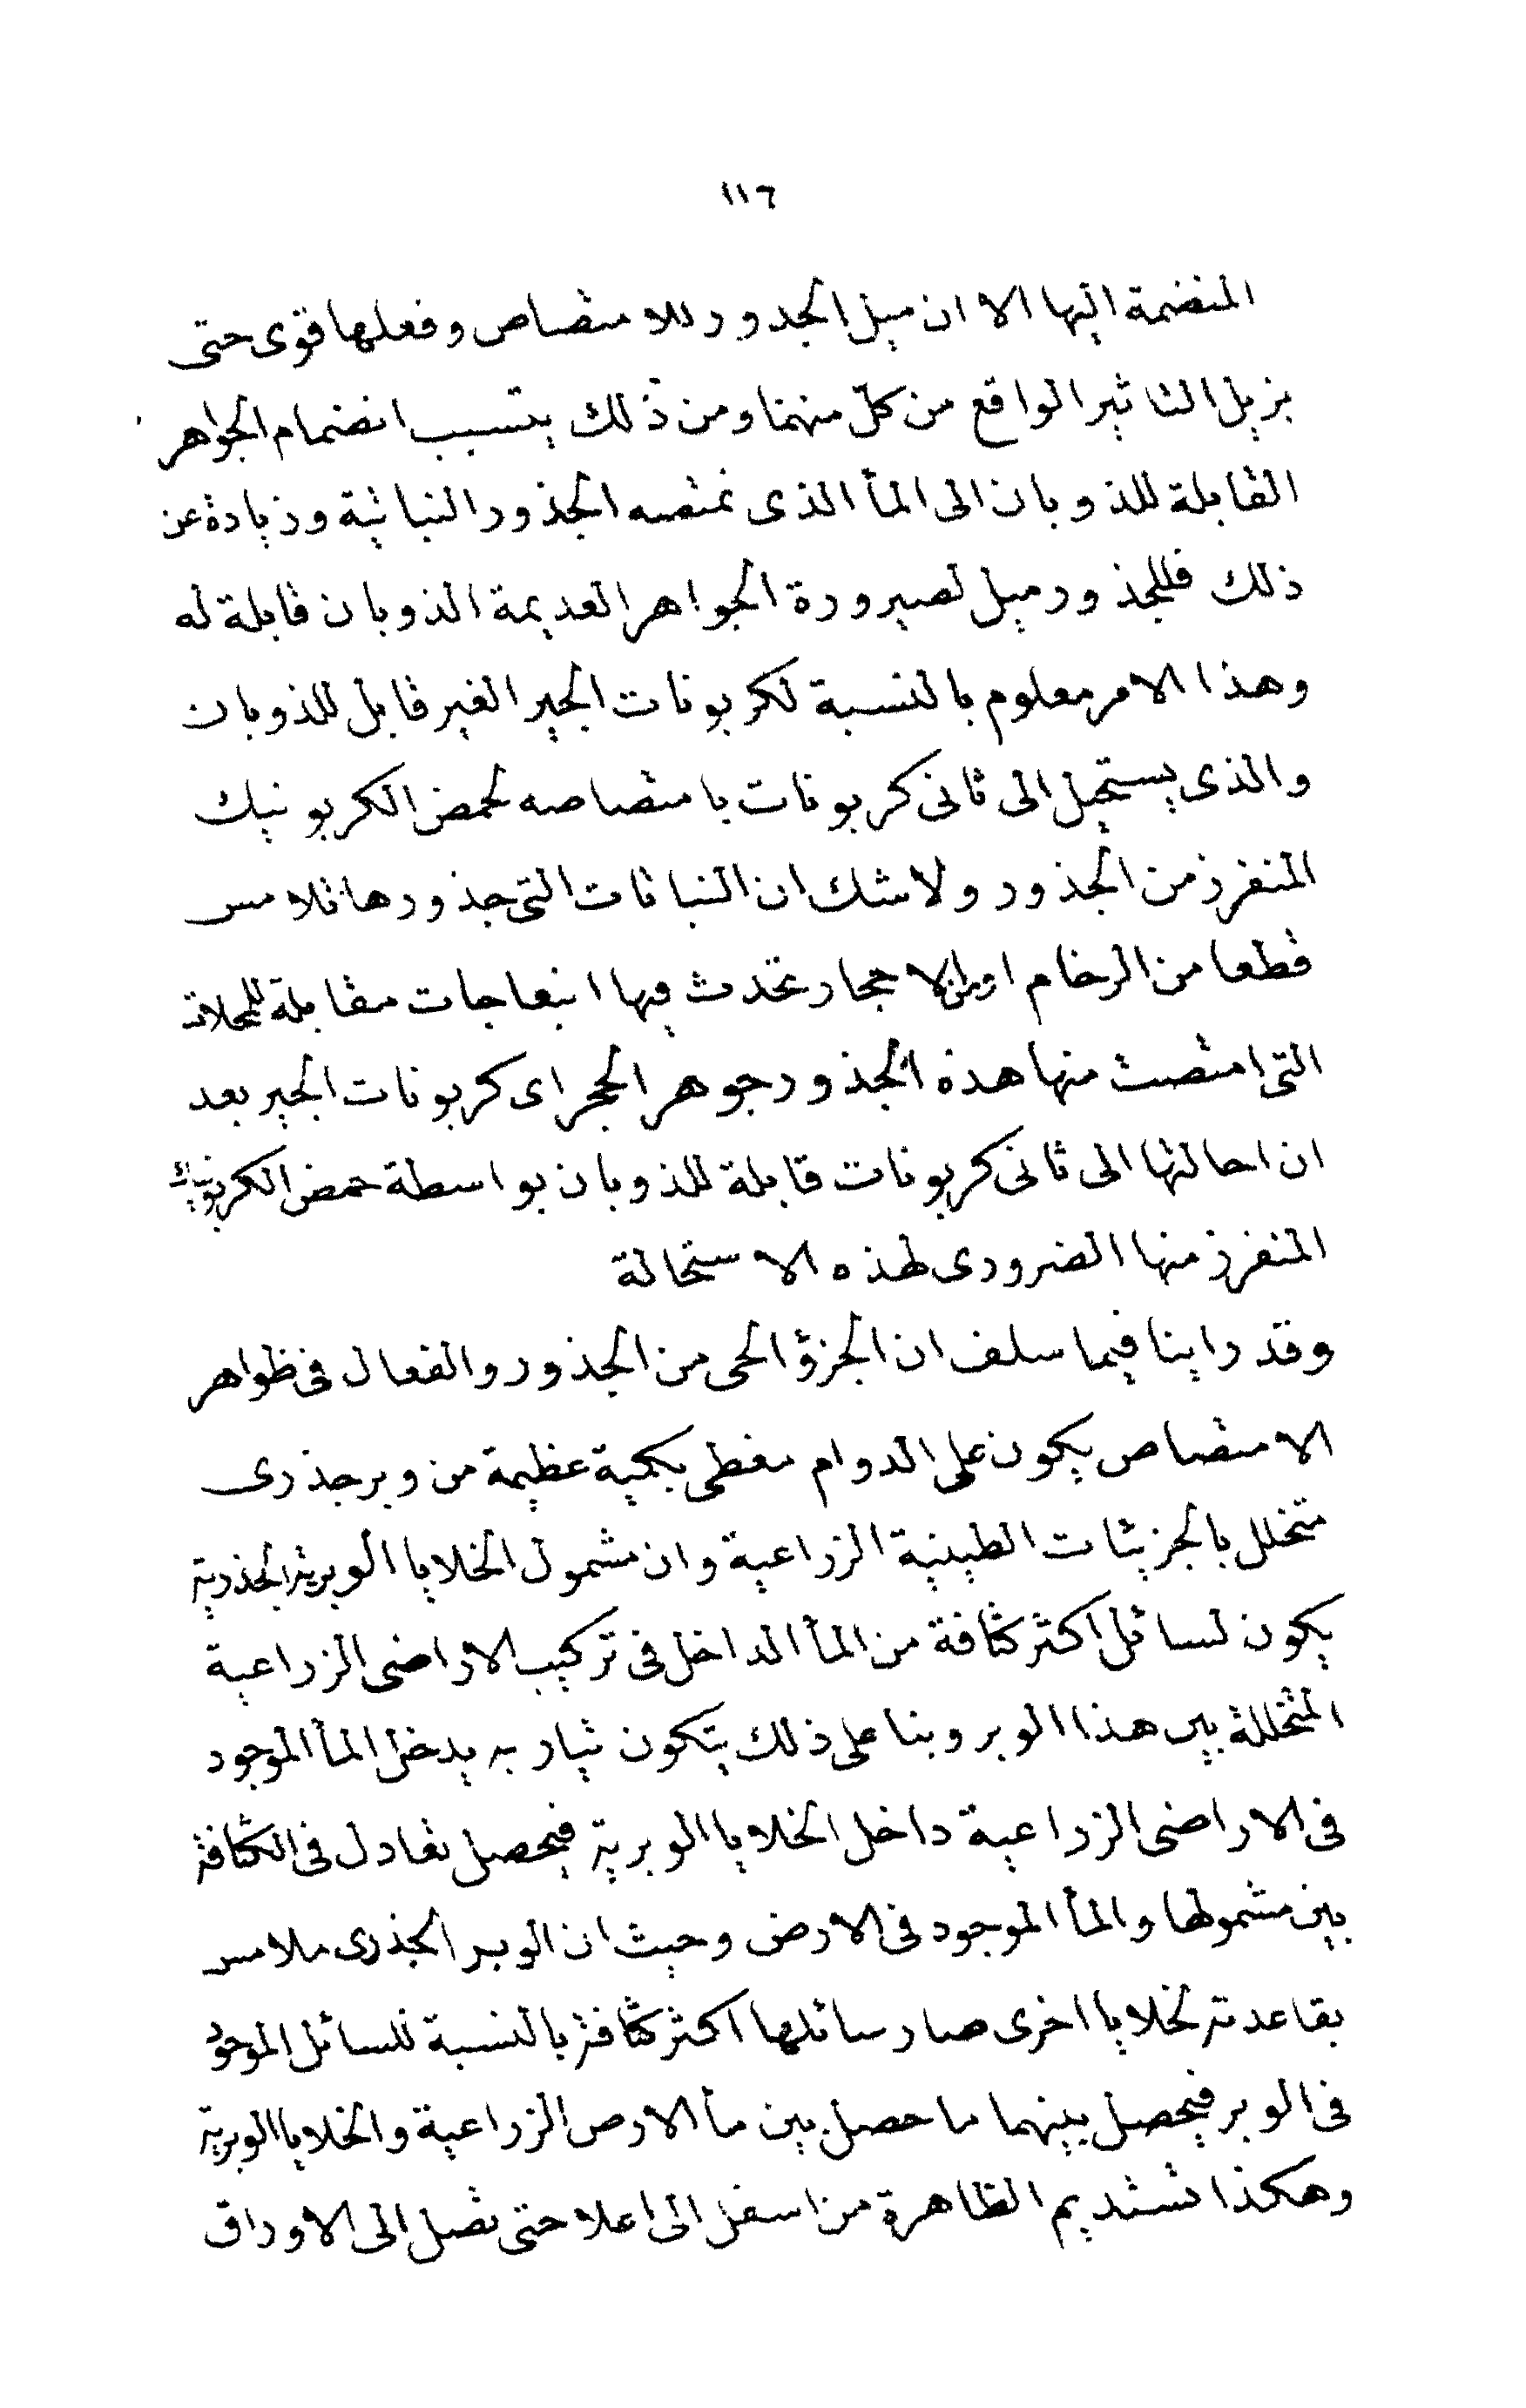 ١١٦
المنضمة اليها الا ان ميل الجدور للامتصاص وفعلها قوى حتى
يزيل التاثير الواقع من كلّ منهما ومن ذلك يتسبب انضمام الجواهر
القابلة للذوبان الى المأ الذى تمتصه الجذور النباتية وزيادة عن
ذلك فللجذور ميل لصيرورة الجواهر العديمة الذوبان قابلة له
وهذا الامر معلوم بالنسبة لكربونات الجير الغير قابل للذوبان
والذى يستحيل الى ثانى كربونات بامتصاصه لحمض الكربونيك
المنفرز من الجذور ولاشك ان النباتات التى جذورها تلامس
قطعا من الرخام او من الاحجار تحدث فيها انبعاجات مقابلة للمحلات
التى امتصت منها هذه الجذور جوهر الحجر اى كربونات الجير بعد
ان احالتها الى ثانى كربونات قابلة للذوبان بواسطة حمض الكربونيك
المنفرز منها الضرورى لهذه الاستحالة
وقد راينا فيما سلف ان الجزؤ الحى من الجذور والفعال فى ظواهر
الامتصاص يكون على الدوام مغطى بكمية عظيمة من وبر جذرى
متخلل بالجزيئات الطينية الزراعية وان مشمول الخلايا الوبرية الجذرية
يكون لسائل اكثر كثافة من المأ الداخل فى تركيب الاراضى الزراعية
المتخللة بين هذا الوبر وبنا على ذلك يتكون تيار به يدخل المأ الموجود
فى الاراضى الزراعية داخل الخلايا الوبرية فيحصل تعادل فى الكثافة
بين مشمولها والمأ الموجود فى الارض وحيث ان الوبر الجذرى ملامس
بقاعدته لخلايا اخرى صار سائلها اكثر كثافة بالنسبة للسائل الموجود
فى الوبر فيحصل بينهما ما حصل بين مأ الارض الزراعية والخلايا الوبرية
وهكذا تستديم الظاهرة من اسفل الى اعلا حتى تصل الى الاوراق